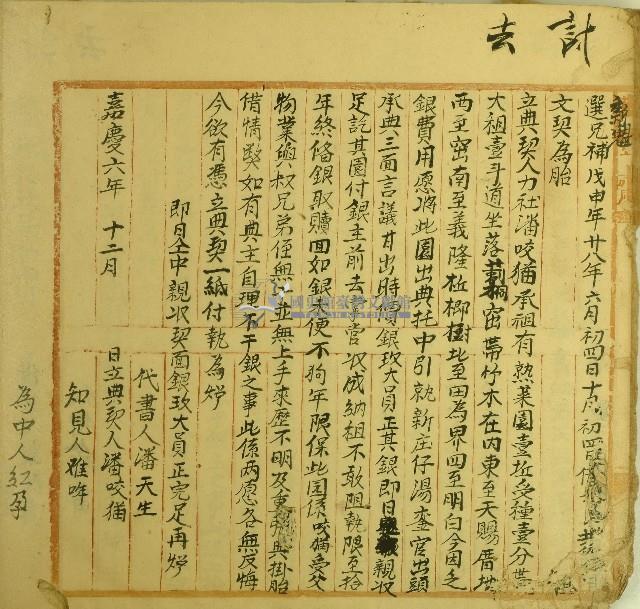 計去
選兄補戊申年廿八年六月初四日十戌初四
文契為胎
立典契人力社潘咬猫承祖有熟菜園壹坵受種壹分帶
大祖壹斗道坐落莿桐窑帶竹木在内東至天賜厝地
西至窑南至義隆檳榔樹北至田為界四至明白今因乏
銀費用愿將此園出典托中引就新庄仔湯奎官出頭
承典三面言議甘出時價銀玖大員正其銀即日親收
足訖其園付銀主前去掌管收成納租不敢阻執限至拾
年終備銀取贖面如銀不便不狗年限保此園係咬猫受父
物業與叔兄弟侄無涉並無上手來歷不明及重典掛胎
借情弊如有典主自理不干銀之事此係两愿各無反悔
今欲有憑立典契一紙付執為炤
即日仝中親收契面銀玖大員正完足再炤
代書人潘天生
嘉慶六年 十二月 日立典契人潘咬猫
知見人雅哖
為中人紅孕